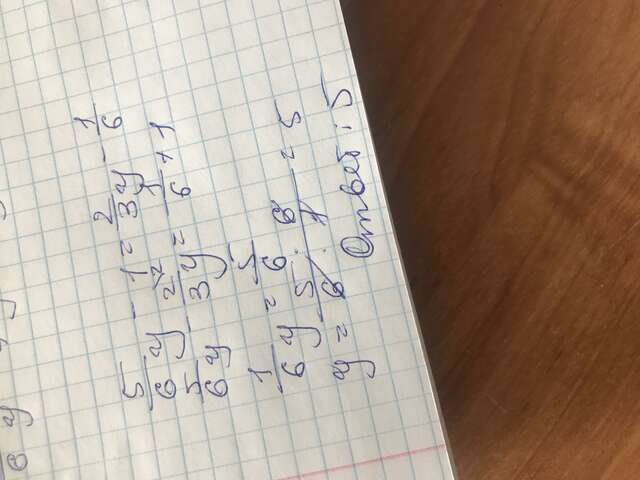 5/6 y - 1 = 2/3 y - 1/6
5/6 y - 2/3 y = 1/6 + 1
1/6 y = 5/6
y = 5/6 · 6/1 = 5
Ответ: 5
6 y